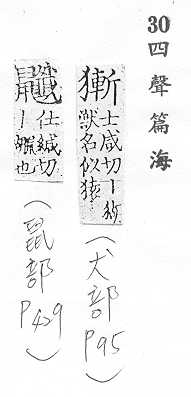 30 四聲篇海
獑
士咸切丨
獸名似猿
(犬部 P95)
仕緘切
丨 也
(鼠部 P429)